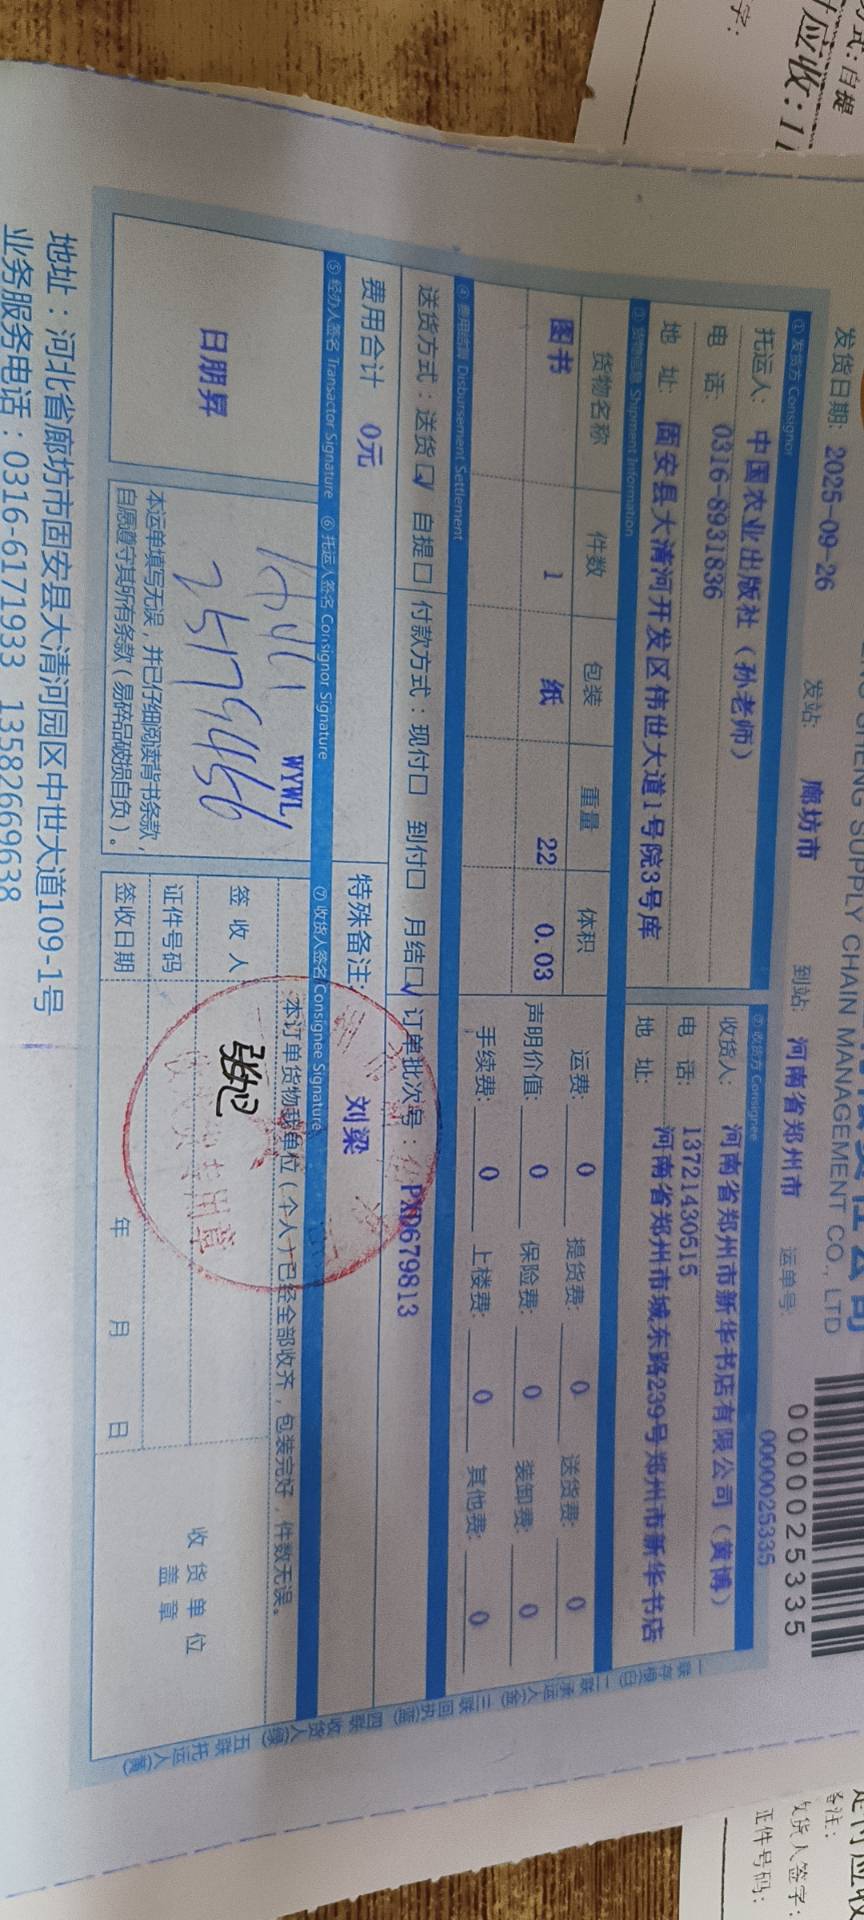 SUPPLY CHAIN MANAGEMENT CO., LTD
发货日期: 2025-09-26 发站: 廊坊市 到站: 河南省郑州市 运单号:
0000025335
0000025335
① 发货方 Consignor ② 收货方 Consignee
托运人: 中国农业出版社（孙老师） 收货人: 河南省郑州市新华书店有限公司（黄博）
电 话: 0316-8931836 电 话: 13721430515
地 址: 固安县大清河开发区伟世大道1号院3号库 地 址: 河南省郑州市城东路239号郑州市新华书店
③ 货物信息 Shipment Information
货物名称 件数 包装 重量 体积 运费: 0 提货费: 0 送货费: 0
图书 1 纸 22 0.03 声明价值: 0 保险费: 0 装卸费: 0
手续费: 0 上楼费: 0 其他费: 0
④ 费用结算 Disbursement Settlement
送货方式：送货☑ 自提□ 付款方式：现付□ 到付□ 月结☑ 订单批次号：PXD679813
费用合计 0元 特殊备注: 刘梁
⑤ 经办人签名 Transactor Signature ⑥ 托运人签名 Consignor Signature ⑦ 收货人签名 Consignee Signature
日朋昇
WYWL
本运单填写无误，并已仔细阅读背书条款，
自愿遵守其所有条款（易碎品破损自负）。
本订单货物我单位（个人）已经全部收齐，包装完好，件数无误。
签 收 人
证件号码
签收日期 年 月 日
收货单位
盖 章
专用章
地址：河北省廊坊市固安县大清河园区中世大道109-1号
业务服务电话：0316-6171933 13582669638
一联存根(白) 二联承运人(金) 三联回执(蓝) 四联收货人(绿) 五联托运人(黄)
式: 自提
应收: 11
字:
备注:
收货人签字:
证件号码: